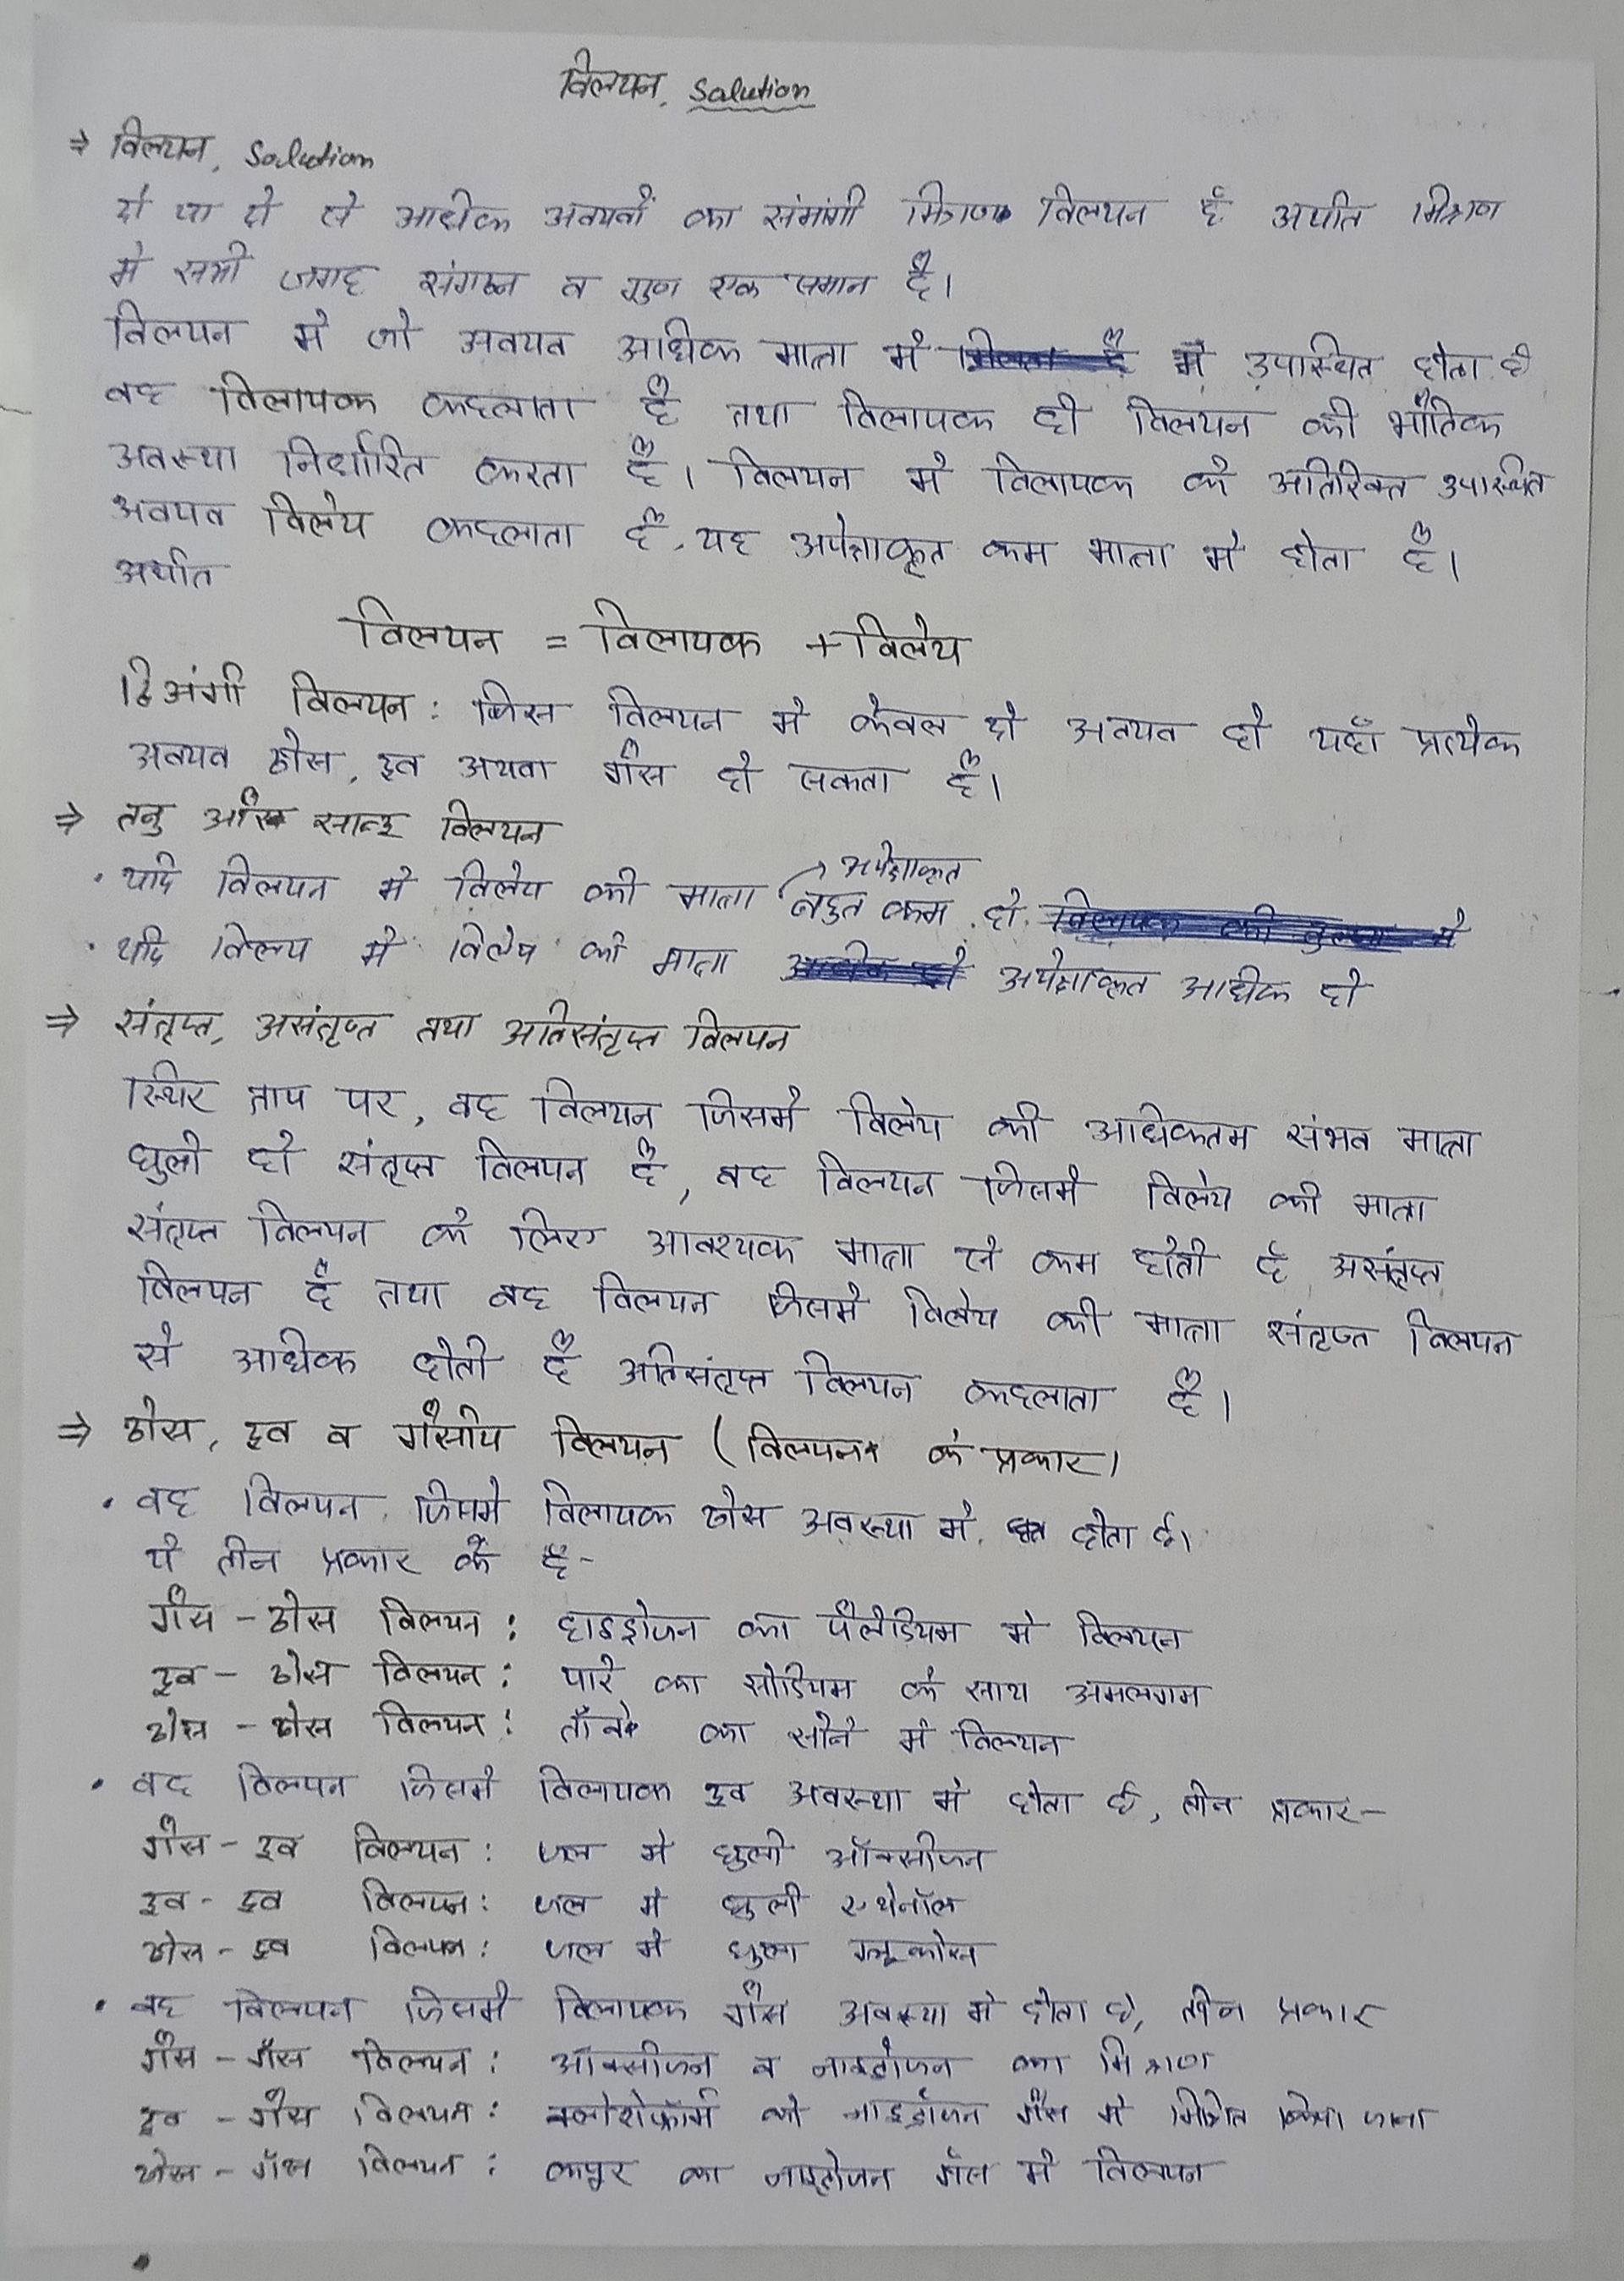 विलयन, Solution
⇒ विलयन, Solution
दो या दो से अधिक अवयवों का संमांगी मिश्रण विलयन है अर्थात मिश्रण
मे सभी जगह संगठन व गुण एक समान है।
विलयन मे जो अवयव अधिक मात्रा मे में उपस्थित होता है
वह विलायक कहलाता है तथा विलायक ही विलयन की भौतिक
अवस्था निर्धारित करता है। विलयन मे विलायक के अतिरिक्त उपस्थित
अवयव विलेय कहलाता है, यह अपेक्षाकृत कम मात्रा मे होता है।
अर्थात
विलयन = विलायक + विलेय
द्विअंगी विलयन : जिस विलयन मे केवल दो अवयव हो यहाँ प्रत्येक
अवयव ठोस, द्रव अथवा गैस हो सकता है।
⇒ तनु और सान्द्र विलयन
· यदि विलयन मे विलेय की मात्रा अपेक्षाकृत बहुत कम हो
· यदि विलय मे विलेय की मात्रा अपेक्षाकृत अधिक हो
⇒ संतृप्त, असंतृप्त तथा अतिसंतृप्त विलयन
स्थिर ताप पर, वह विलयन जिसमे विलेय की अधिकतम संभव मात्रा
घुली हो संतृप्त विलयन है, वह विलयन जिसमे विलेय की मात्रा
संतृप्त विलयन के लिए आवश्यक मात्रा से कम होती है असंतृप्त
विलयन है तथा वह विलयन जिसमे विलेय की मात्रा संतृप्त विलयन
से अधिक होती है अतिसंतृप्त विलयन कहलाता है।
⇒ ठोस, द्रव व गैसीय विलयन ( विलयन के प्रकार)
· वह विलयन जिसमे विलायक ठोस अवस्था मे होता है।
ये तीन प्रकार के है-
गैस - ठोस विलयन : हाइड्रोजन का पैलेडियम मे विलयन
द्रव - ठोस विलयन : पारे का सोडियम के साथ अमलगम
ठोस - ठोस विलयन : ताँबे का सोने मे विलयन
· वह विलयन जिसमे विलायक द्रव अवस्था मे होता है, तीन प्रकार-
गैस - द्रव विलयन : जल मे घुली ऑक्सीजन
द्रव - द्रव विलयन : जल मे घुली एथेनॉल
ठोस - द्रव विलयन : जल मे घुला ग्लूकोस
· वह विलयन जिसमे विलायक गैस अवस्था मे होता है, तीन प्रकार
गैस - गैस विलयन : ऑक्सीजन व नाइट्रोजन का मिश्रण
द्रव - गैस विलयन : क्लोरोफॉर्म को नाइट्रोजन गैस मे मिश्रित किया जाना
ठोस - गैस विलयन : कपूर का नाइट्रोजन गैस मे विलयन